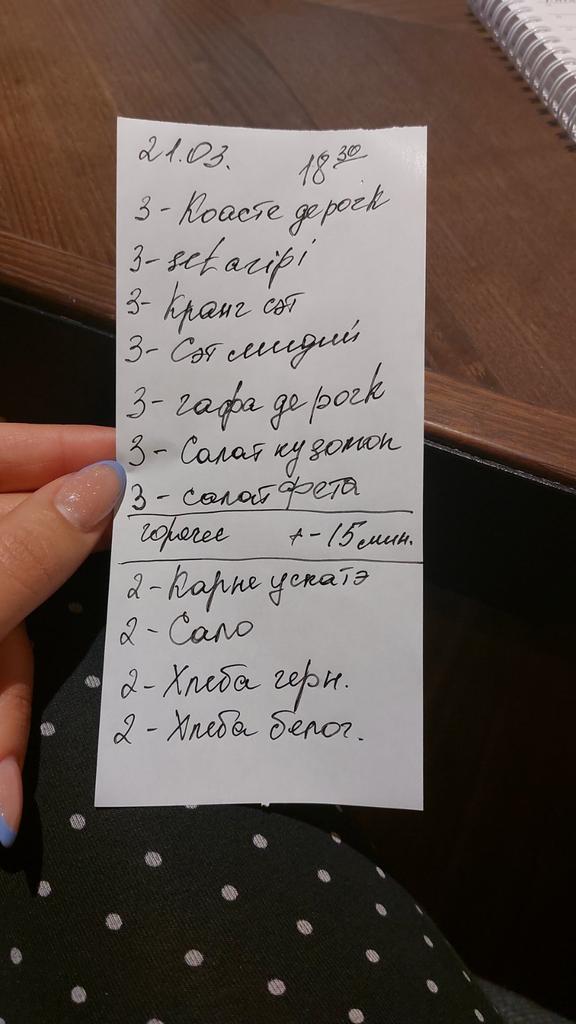 21.03. 18 30
3 - Коасте де porck
3 - set aripi
3 - Кранг сэт
3 - Сэт мидий
3 - гафа де porck
3 - Салат
3 - салат фета
горячее +-15 мин.
2 - Карне ускатэ
2 - Сало
2 - Хлеба черн.
2 - Хлеба белог.